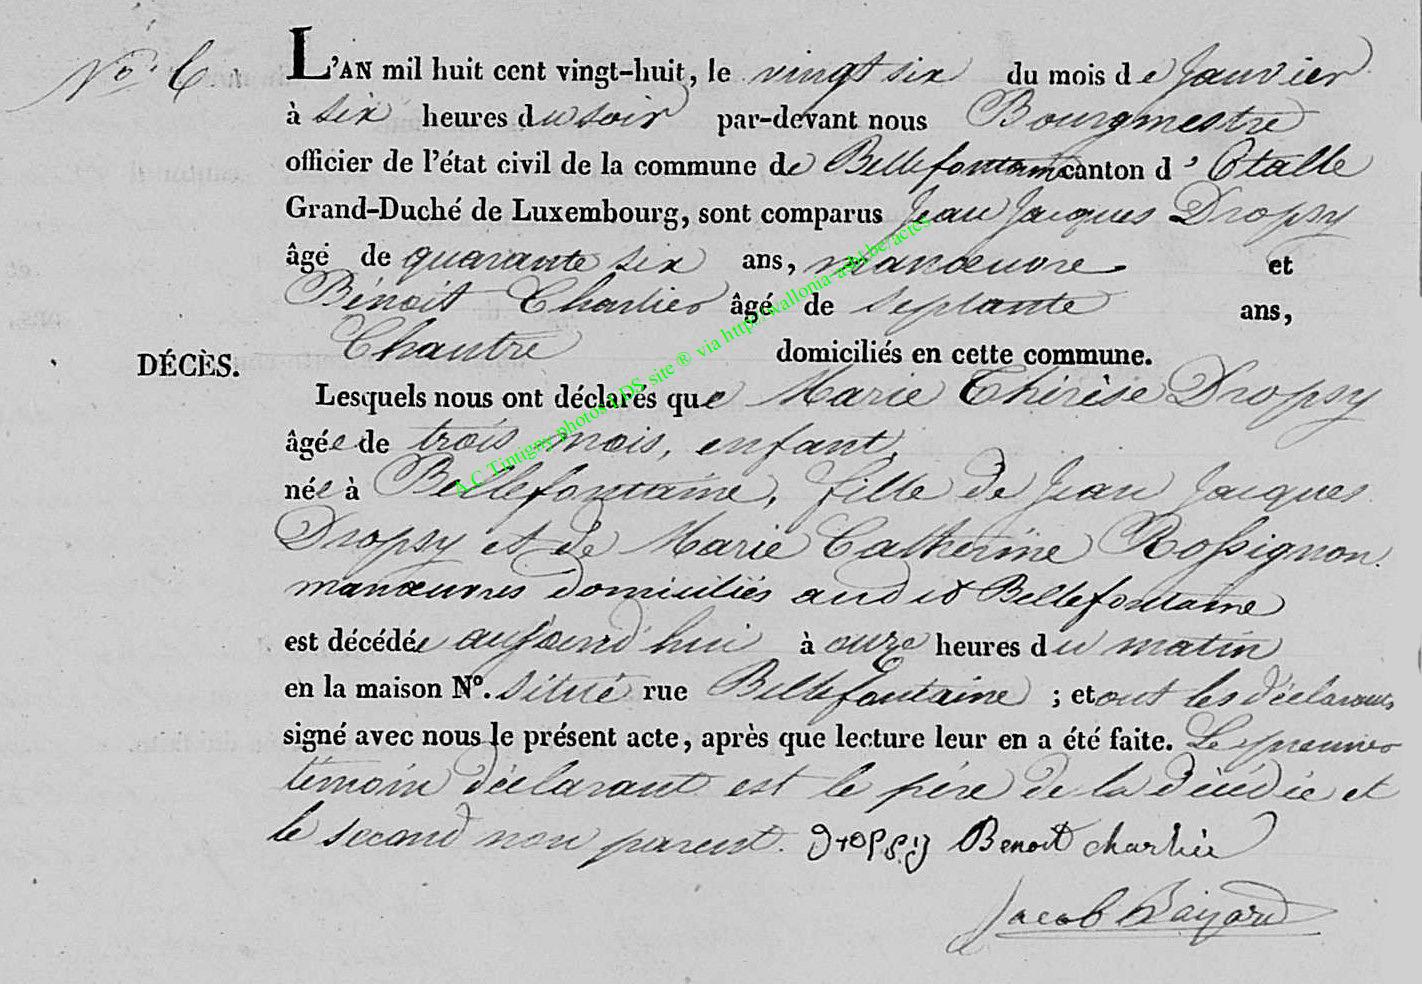 No. 6.
L'AN mil huit cent vingt-huit, le vingt six du mois de Janvier
à six heures du soir par-devant nous Bourgmestre
officier de l'état civil de la commune de Bellefontaine canton d' Etalle
Grand-Duché de Luxembourg, sont comparus Jean Jacques Dropsy
âgé de quarante six ans, manœuvre et
Bénoit Charlier âgé de septante ans,
Chantre domiciliés en cette commune.
DÉCÈS.
Lesquels nous ont déclarés que Marie Thérèse Dropsy
âgée de trois mois, enfant,
née à Bellefontaine, fille de Jean Jacques
Dropsy et de Marie Catherine Rossignon.
manœuvres domiciliés audit Bellefontaine
est décédée aujourd'hui à onze heures du matin
en la maison N°. situé rue Bellefontaine ; et ont les déclarants
signé avec nous le présent acte, après que lecture leur en a été faite. Le premier
témoin déclarant est le père de la décédée et
le second non parent. Dropsy Benoit charlier
Jacob Bayard
A.C Tintigny photos LDS site ® via http://wallonia-asbl.be/actes